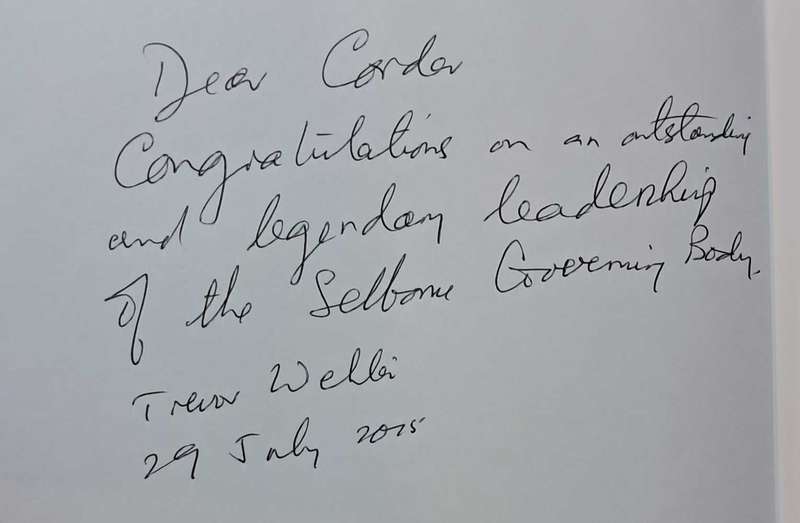 Dear Condor
Congratulations on an outstanding
and legendary leadership
of the Selborne Governing Body.
Trevor
29 July